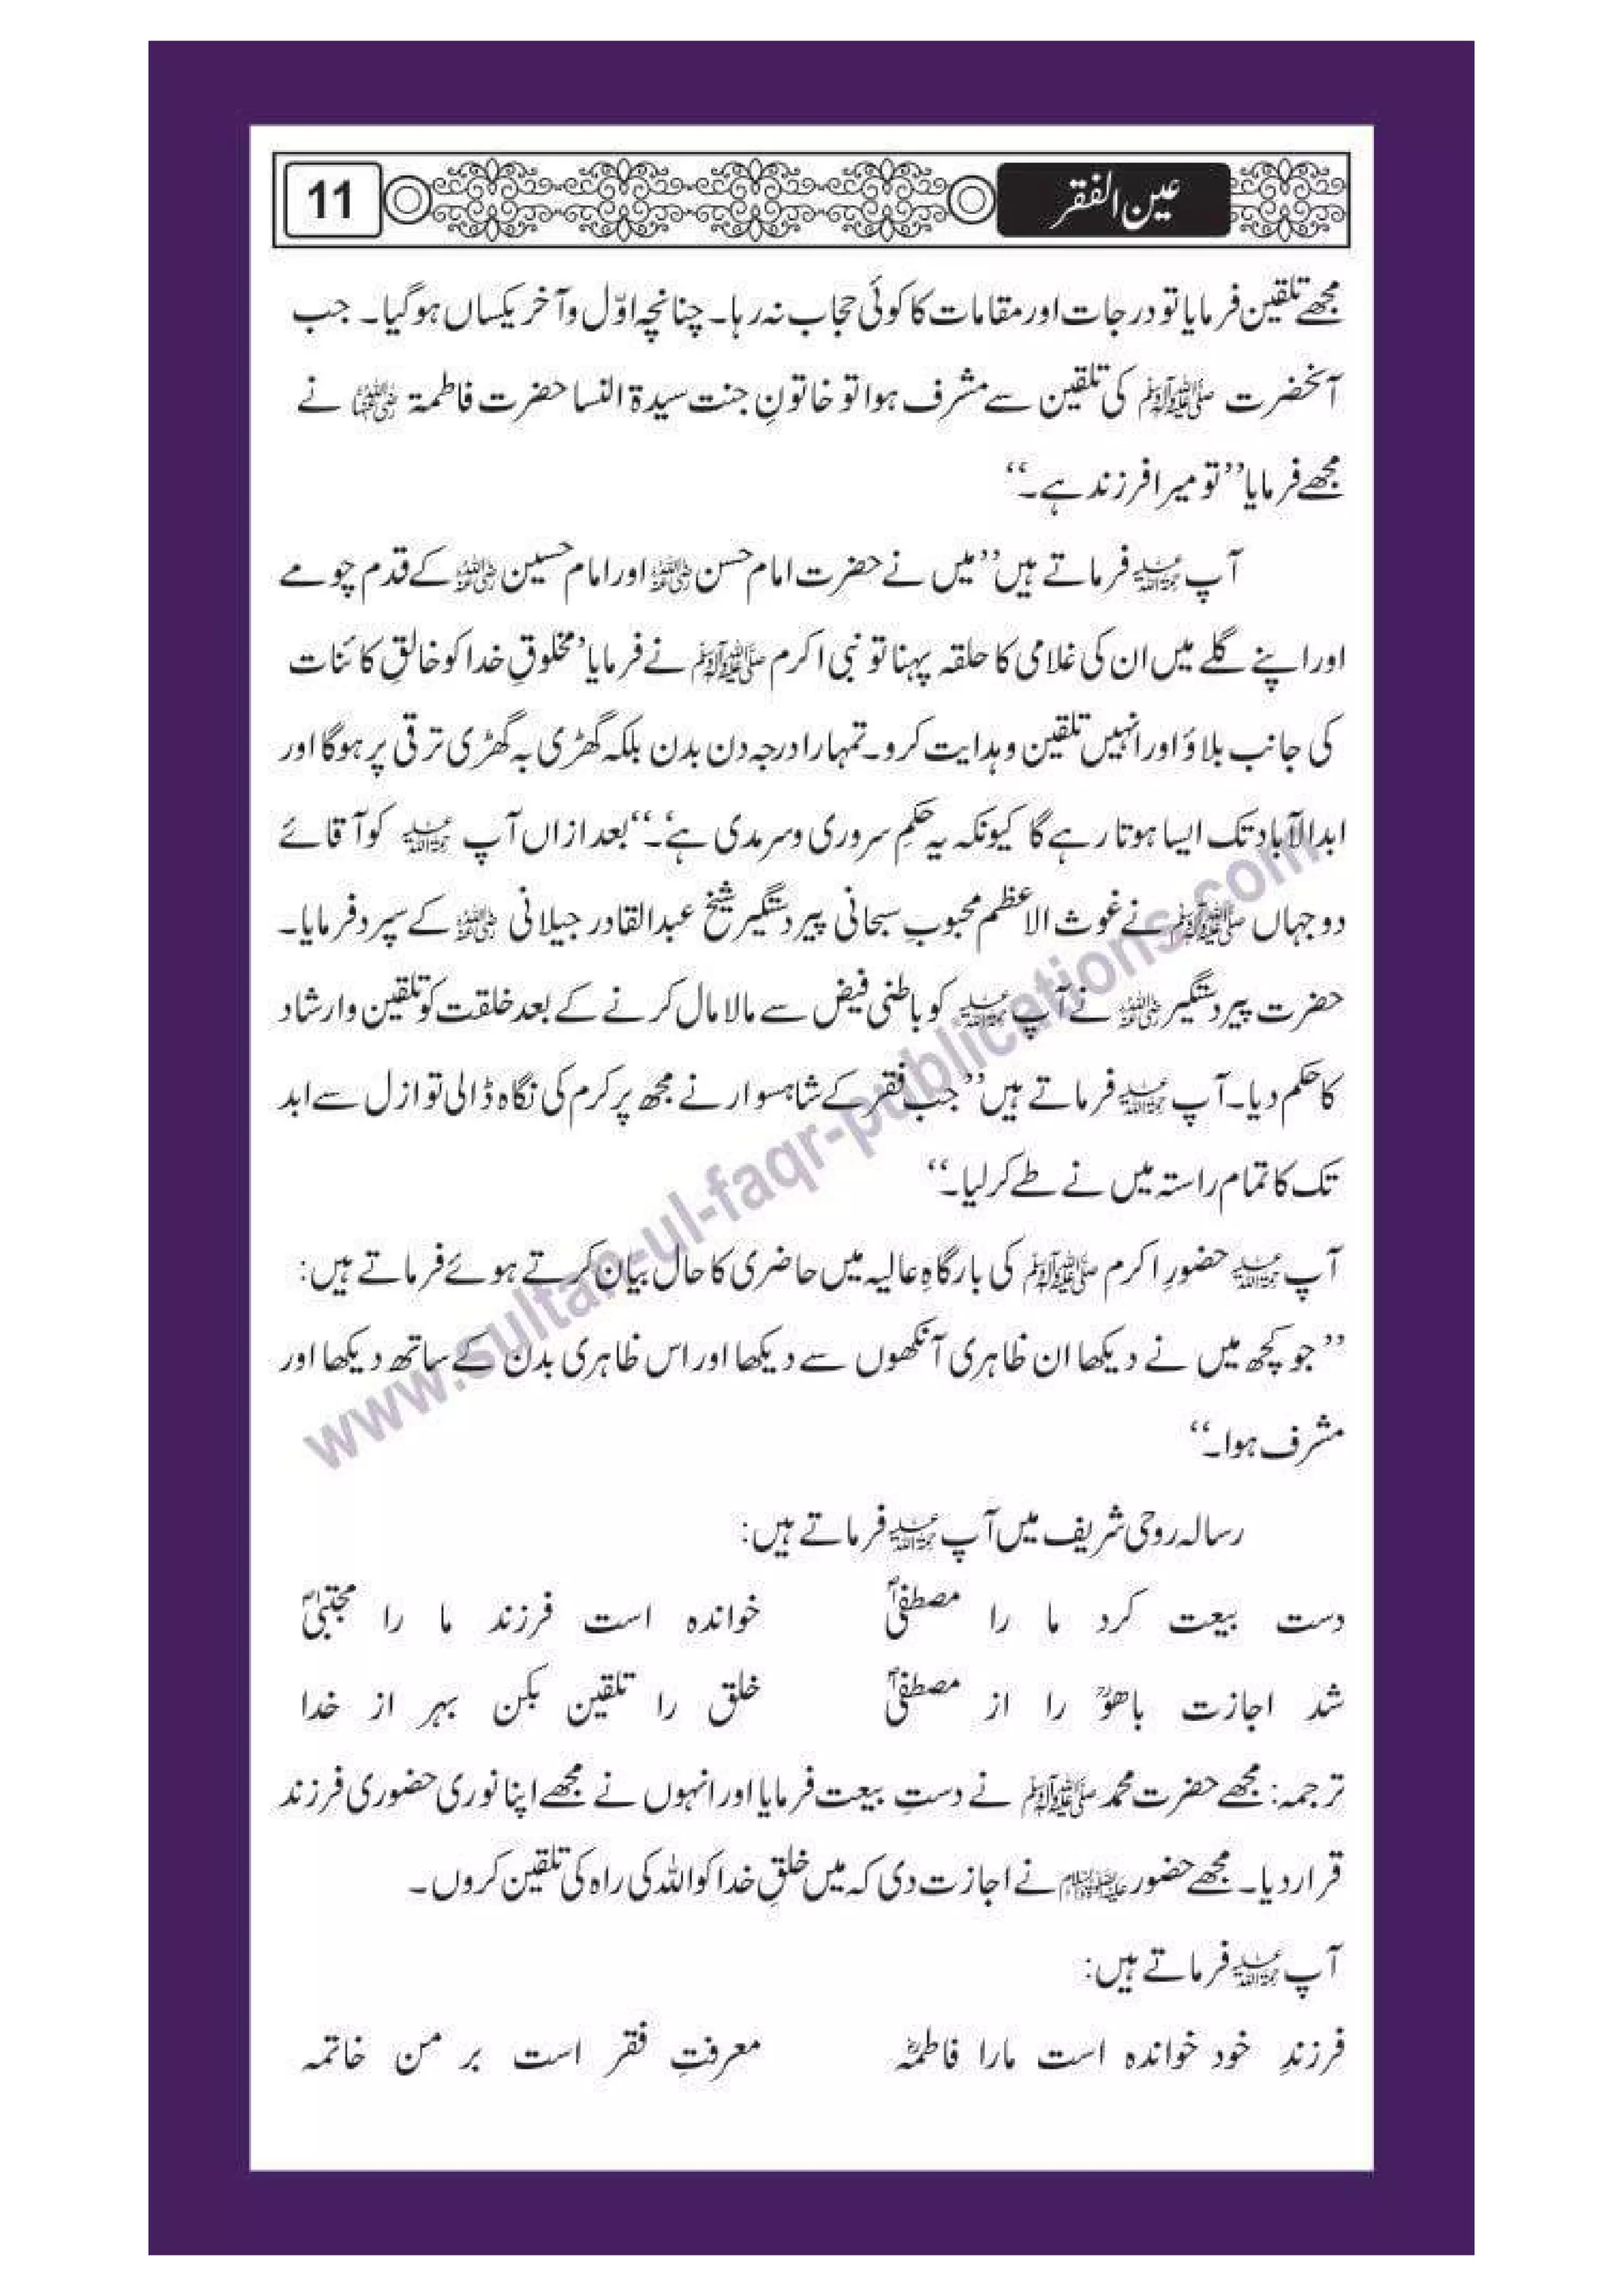 عین الفقر
11
مجھے تلقین فرمایا تو درجات اور مقامات کا کوئی حجاب نہ رہا۔ چنانچہ اوّل و آخر یکساں ہو گیا۔ جب
آنحضرت ﷺ کی تلقین سے مشرف ہوا تو خاتونِ جنت سیدۃ النسا حضرت فاطمۃ رضی اللہ عنہا نے
مجھے فرمایا ’’تو میرا فرزند ہے۔‘‘
آپ رحمۃ اللہ علیہ فرماتے ہیں ’’میں نے حضرت امام حسن رضی اللہ عنہ اور امام حسین رضی اللہ عنہ کے قدم چومے
اور اپنے گلے میں ان کی غلامی کا حلقہ پہنا تو نبی اکرم ﷺ نے فرمایا ’مخلوقِ خدا کو خالقِ کائنات
کی جانب بلاؤ اور انہیں تلقین و ہدایت کرو۔ تمہارا درجہ دن بدن بلکہ گھڑی بہ گھڑی ترقی پر ہوگا اور
ابدالآباد تک ایسا ہوتا رہے گا کیونکہ یہ حکمِ سروری و سرمدی ہے‘۔‘‘ بعد ازاں آپ رحمۃ اللہ علیہ کو آقائے
دو جہاں ﷺ نے غوث الاعظم محبوبِ سبحانی پیر دستگیر شیخ عبدالقادر جیلانی رضی اللہ عنہ کے سپرد فرمایا۔
حضرت پیر دستگیر رضی اللہ عنہ نے آپ رحمۃ اللہ علیہ کو باطنی فیض سے مالا مال کرنے کے بعد خلقت کو تلقین و ارشاد
کا حکم دیا۔ آپ رحمۃ اللہ علیہ فرماتے ہیں ’’جب فقر کے شاہسوار نے مجھ پر کرم کی نگاہ ڈالی تو ازل سے ابد
تک کا تمام راستہ میں نے طے کر لیا۔‘‘
آپ رحمۃ اللہ علیہ حضورِ اکرم ﷺ کی بارگاہِ عالیہ میں حاضری کا حال بیان کرتے ہوئے فرماتے ہیں:
’’جو کچھ میں نے دیکھا ان ظاہری آنکھوں سے دیکھا اور اس ظاہری بدن کے ساتھ دیکھا اور
مشرف ہوا۔‘‘
رسالہ روحی شریف میں آپ رحمۃ اللہ علیہ فرماتے ہیں:
دست بیعت کرد ما را مصطفیٰؐ خواندہ است فرزند ما را مجتبیٰؐ
شد اجازت باھوؒ را از مصطفیٰؐ خلق را تلقین بکن بہر از خدا
ترجمہ: مجھے حضرت محمد ﷺ نے دستِ بیعت فرمایا اور انہوں نے مجھے اپنا نوری حضوری فرزند
قرار دیا۔ مجھے حضور علیہ الصلوٰۃ والسلام نے اجازت دی کہ میں خلقِ خدا کو اللہ کی راہ کی تلقین کروں۔
آپ رحمۃ اللہ علیہ فرماتے ہیں:
فرزندِ خود خواندہ است مارا فاطمہؓ معرفتِ فقر است بر من خاتمہ
www.sultan-ul-faqr-publications.com